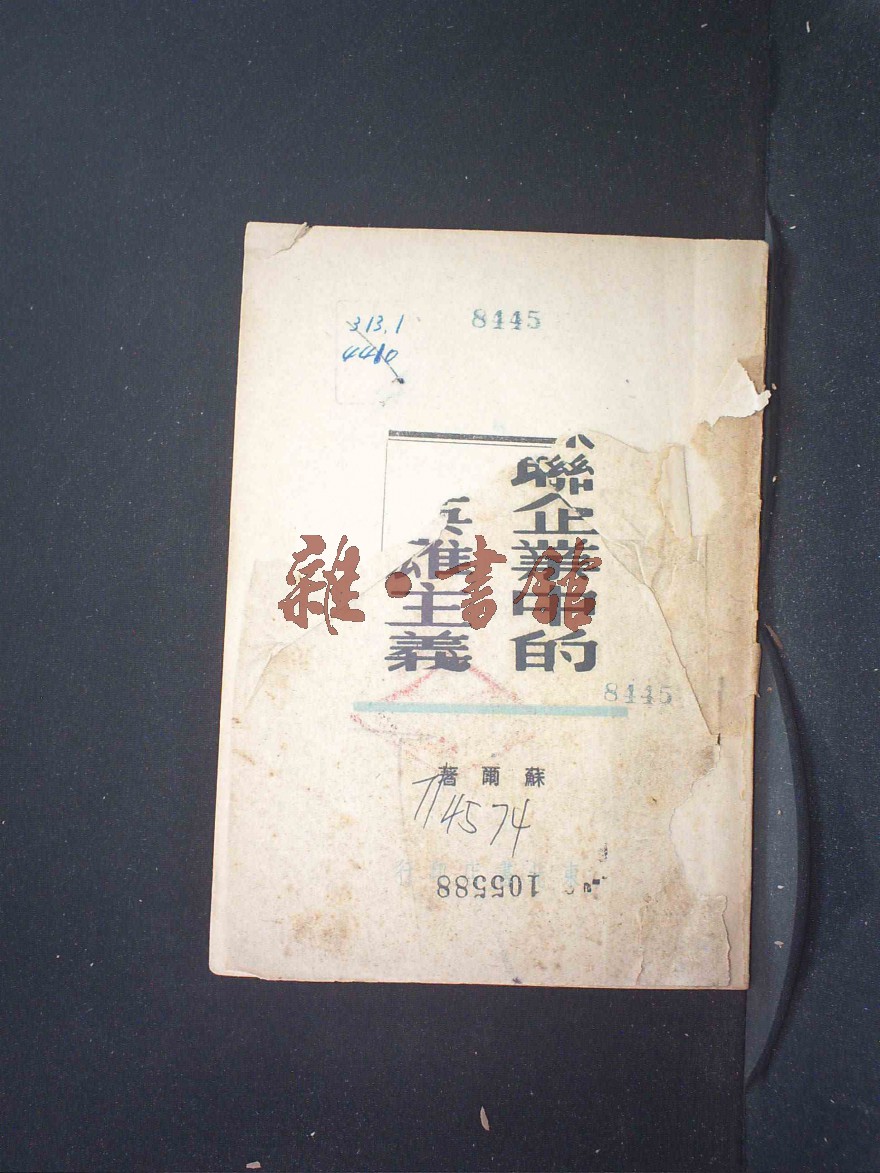 313.1
4410
8445
聯企業中的
雄主義
雜·書館
8445
蘇爾著
114574
105588